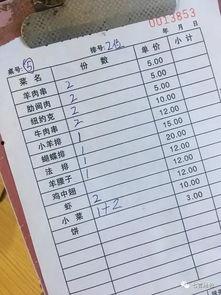 0013853
桌号: 15 排号: 24 年 月 日
菜名 份数 单价 小计
羊肉串 2 5.00
肋间肉 2 5.00
纽约克 2 5.00
牛肉串 2 10.00
小羊排 1 12.00
蝴蝶排 1 15.00
法排 1 20.00
羊腰子 1 12.00
鸡中翅 12.00
虾 2 10.00
小菜 1+2 3.00
饼